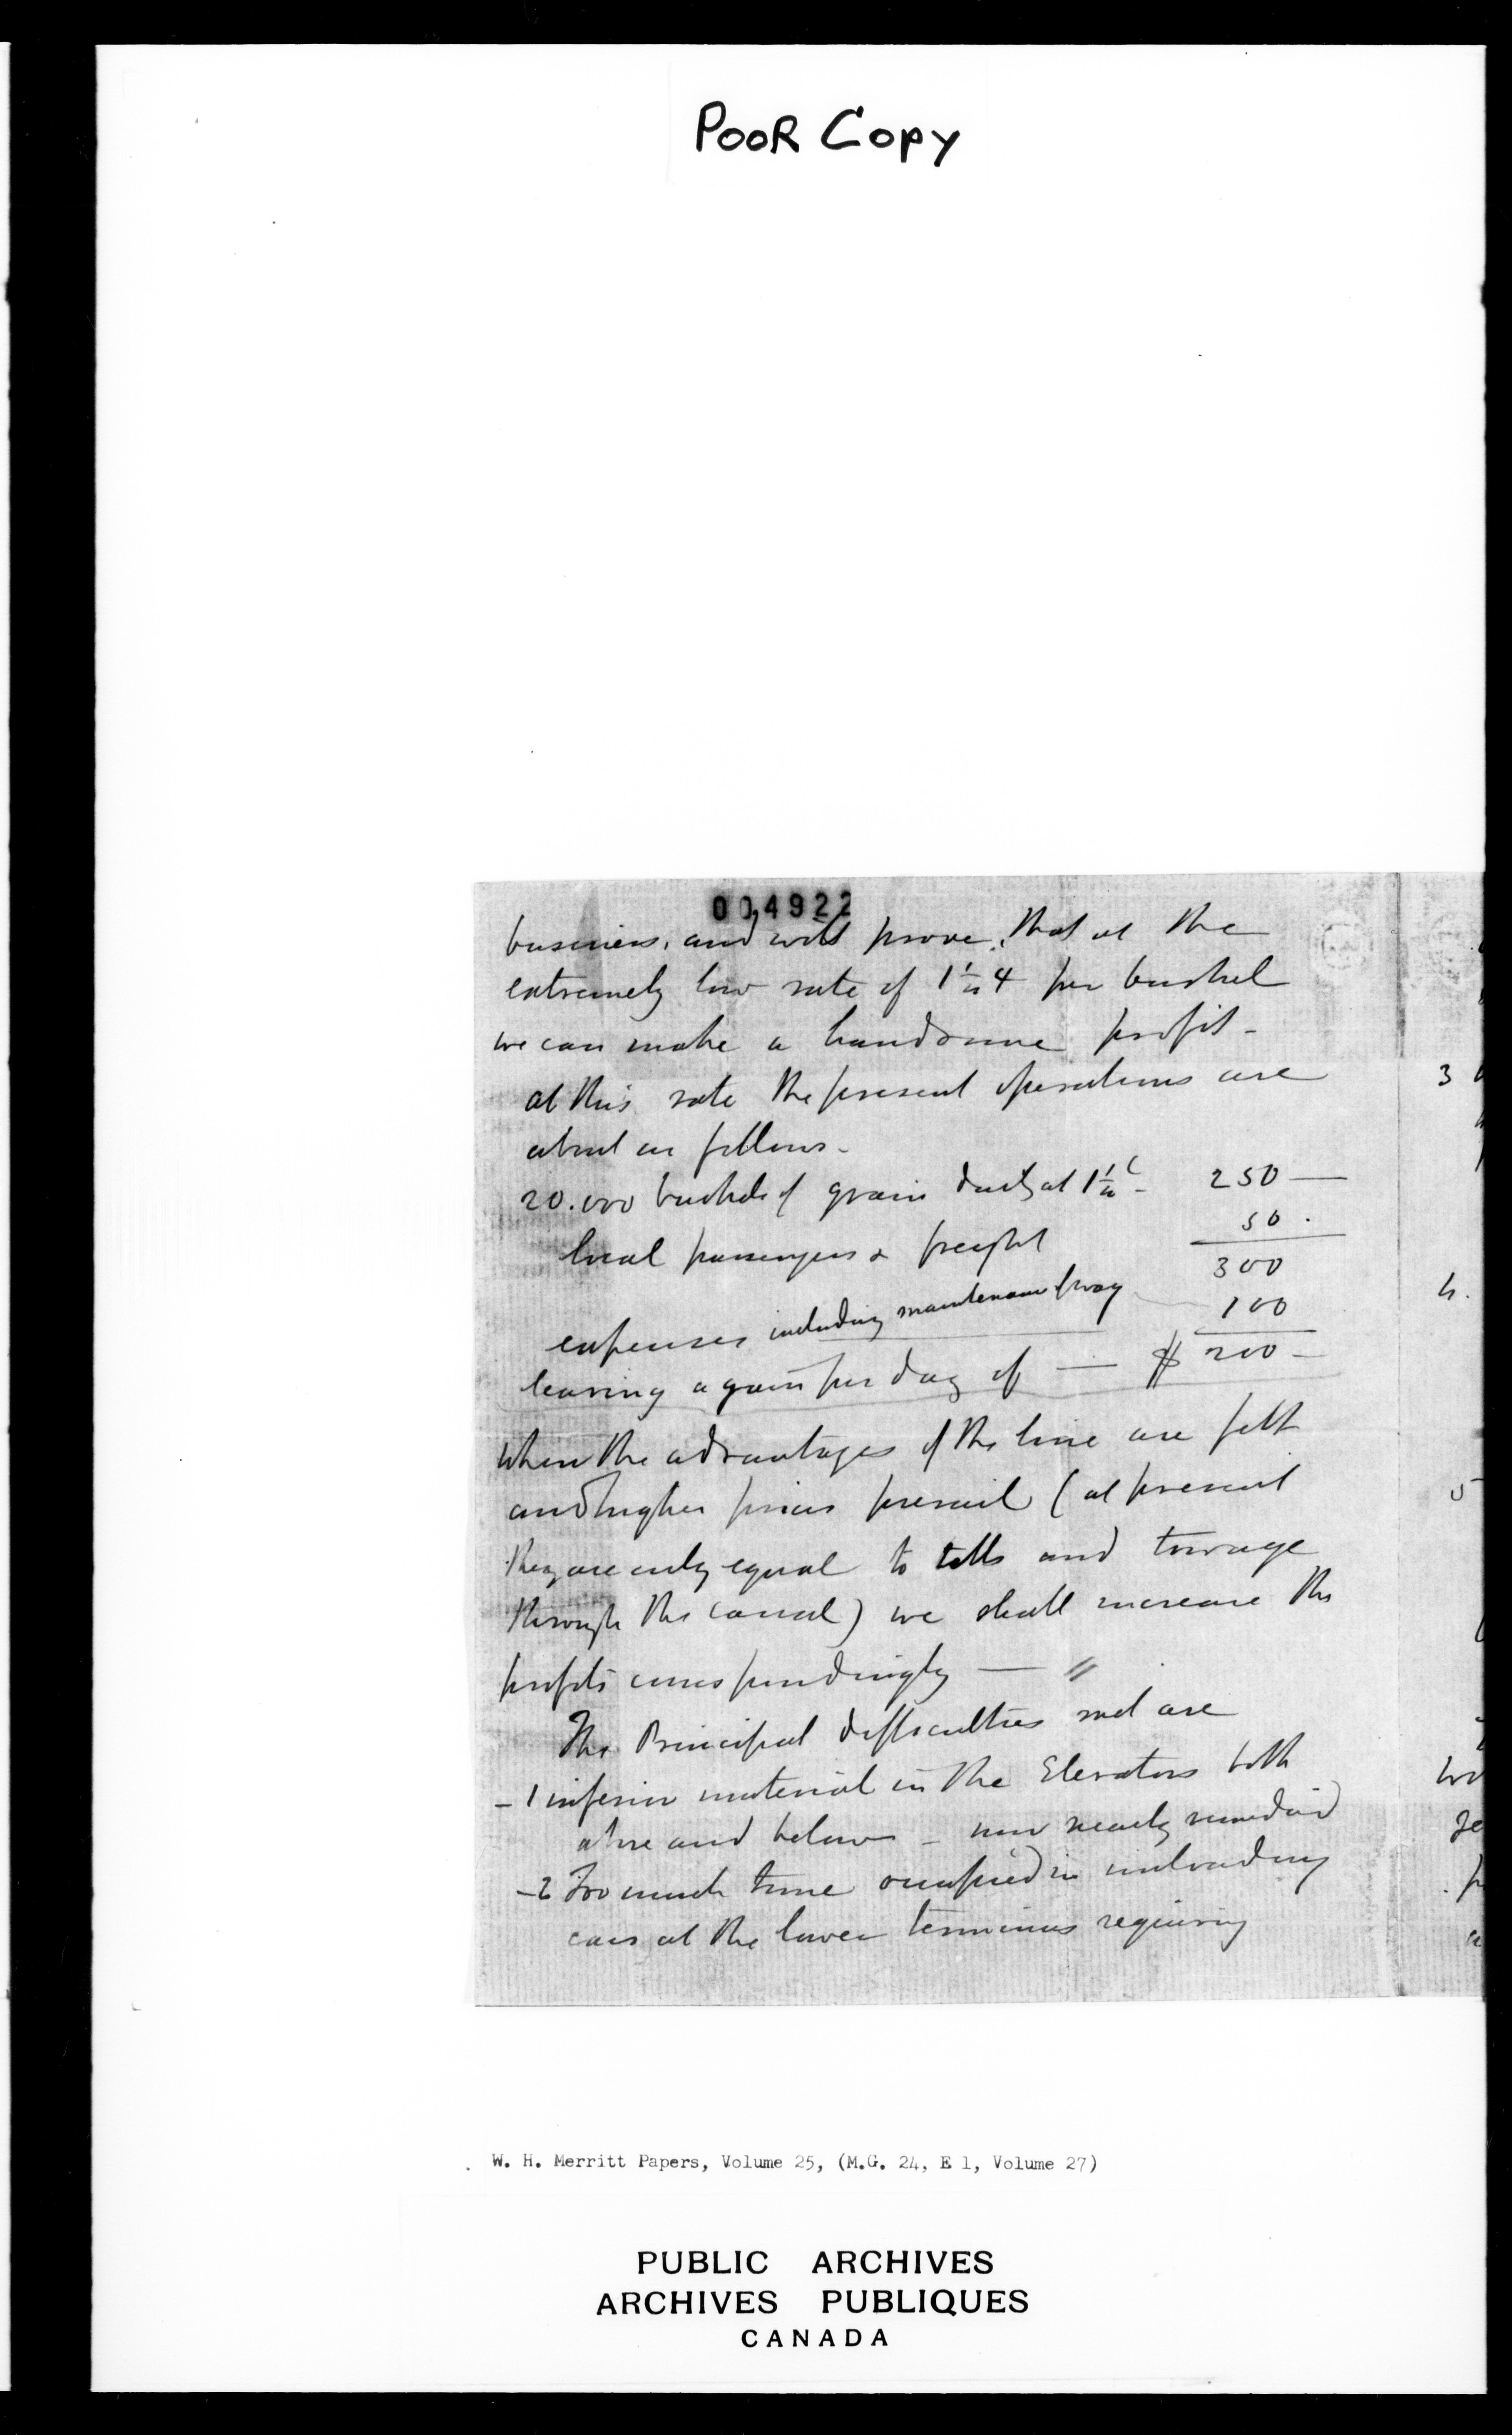 POOR COPY
004922
business, and will prove, that at the
extremely low rate of 1¼ ¢ per bushel
we can make a handsome profit -
at this rate the present operations are
about as follows -
20.000 bushels of grain daily at 1¼ c - 250 —
local passengers & freight 50 .
300
expenses including maintenance of way 100
leaving a gain per day of — $ 200 -
When the advantages of the line are felt
and higher prices prevail (at present
they are only equal to tolls and towage
through the canal) we shall increase the
profits correspondingly — "
The Principal difficulties met are
- 1 inferior material in the Elevators both
above and below - now nearly remedied
- 2 Too much time occupied in unloading
cars at the lower terminus requiring
3
4.
5
W. H. Merritt Papers, Volume 25, (M.G. 24, E 1, Volume 27)
PUBLIC ARCHIVES
ARCHIVES PUBLIQUES
CANADA